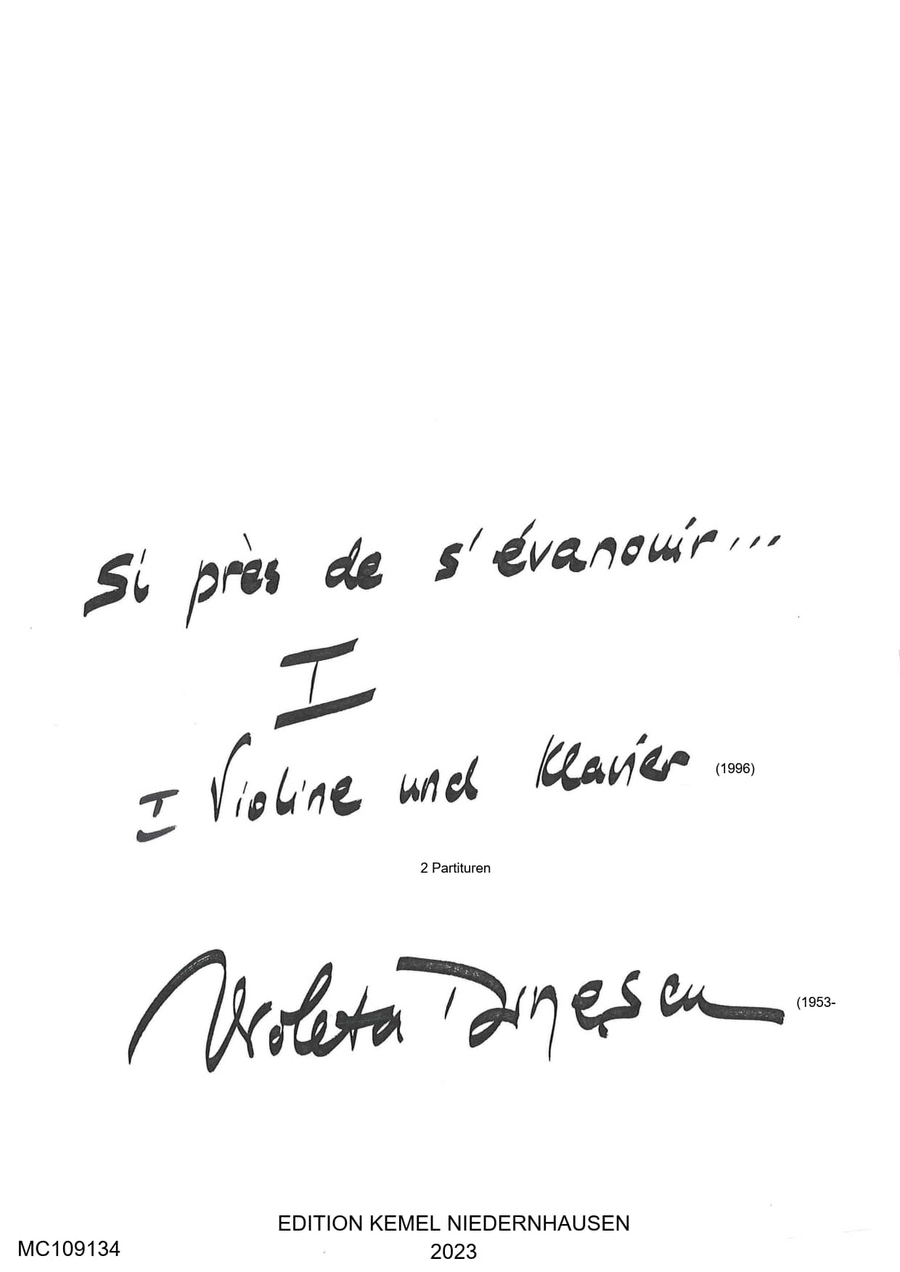 Si près de s'évanouir...
I
I Violine und Klavier (1996)
2 Partituren
Violeta Dinescu (1953-
EDITION KEMEL NIEDERNHAUSEN
MC109134 2023